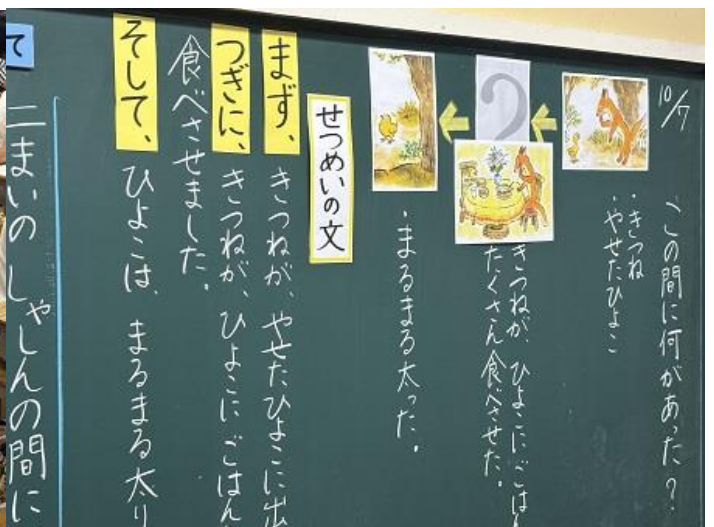 10/7
この間に何があった?
・きつね
・やせたひよこ
?
きつねが、ひよこにごは
たくさん食べさせた。
・まるまる太った。
せつめいの文
まず、きつねが、やせたひよこに出
つぎに、きつねが、ひよこにごはん
食べさせました。
そして、ひよこは、まるまる太り
二まいのしゃしんの間に
て